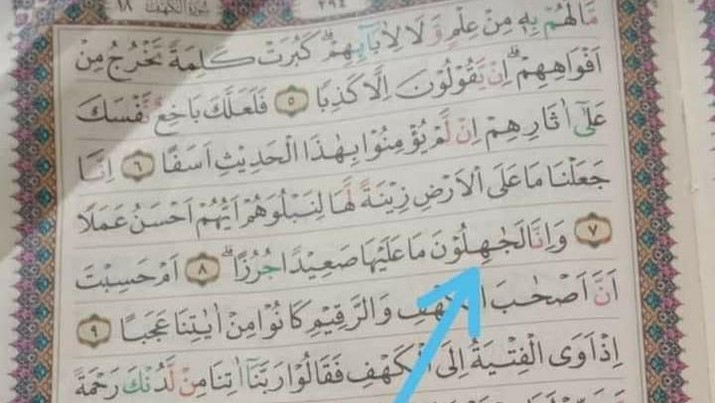 سورة الكهف ١٨ ٢٩٤
مَالَهُمْ بِهٖ مِنْ عِلْمٍ وَّلَا لِاٰبَاۤىِٕهِمْۗ كَبُرَتْ كَلِمَةً تَخْرُجُ مِنْ
اَفْوَاهِهِمْۗ اِنْ يَّقُوْلُوْنَ اِلَّا كَذِبًا ٥ فَلَعَلَّكَ بَاخِعٌ نَّفْسَكَ
عَلٰٓى اٰثَارِهِمْ اِنْ لَّمْ يُؤْمِنُوْا بِهٰذَا الْحَدِيْثِ اَسَفًا ٦ اِنَّا
جَعَلْنَا مَا عَلَى الْاَرْضِ زِيْنَةً لَّهَا لِنَبْلُوَهُمْ اَيُّهُمْ اَحْسَنُ عَمَلًا
٧ وَاِنَّا لَجٰهِلُوْنَ مَا عَلَيْهَا صَعِيْدًا جُرُزًاۗ ٨ اَمْ حَسِبْتَ
اَنَّ اَصْحٰبَ الْكَهْفِ وَالرَّقِيْمِ كَانُوْا مِنْ اٰيٰتِنَا عَجَبًا ٩
اِذْ اَوَى الْفِتْيَةُ اِلَى الْكَهْفِ فَقَالُوْا رَبَّنَآ اٰتِنَا مِنْ لَّدُنْكَ رَحْمَةً